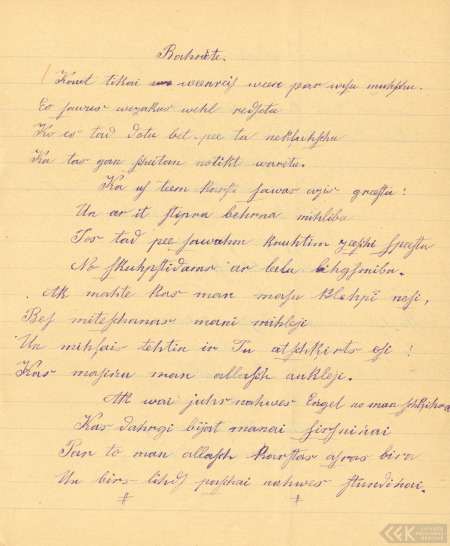 Bahrite.
Kaut tikai weenreis weere par wisu muhschu.
Es sawus wezakus wehl redsetu
Ko es tad dotu bet pee ta nekluhschu
Ka tas gan scheitan notikt waretu.
Ka us teem koschi sawas azis greestu!
Un ar it stipra behrna mihlibu
Tos tad pee sawahm kruhtim zeeschi speestu
No skuhpstidama ar leelu lihgsmibu.
Ak mahte kas man masu klehpi nesi,
Bes miteschanas mani mihleji
Un mihlais tehtin ir Tu atschkirts esi!
Kas masinu man allasch aukleji.
Ak wai juhs nahwes Engel no man schkihra
Kas dahrgi bijat manai sirsninai
Par to man allasch karstas asras bira
Un birs lihds paschai nahwes stundinai.